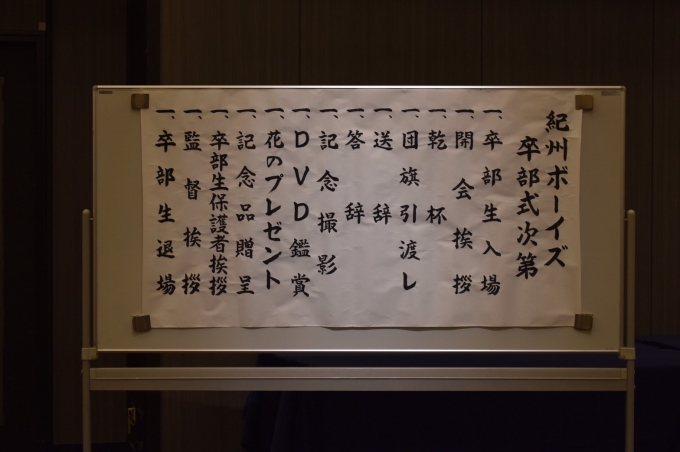 紀州ボーイズ
卒部式次第
一、卒部生入場
一、開会挨拶
一、乾杯
一、団旗引渡し
一、送辞
一、答辞
一、記念撮影
一、DVD鑑賞
一、花のプレゼント
一、記念品贈呈
一、卒部生保護者挨拶
一、監督挨拶
一、卒部生退場